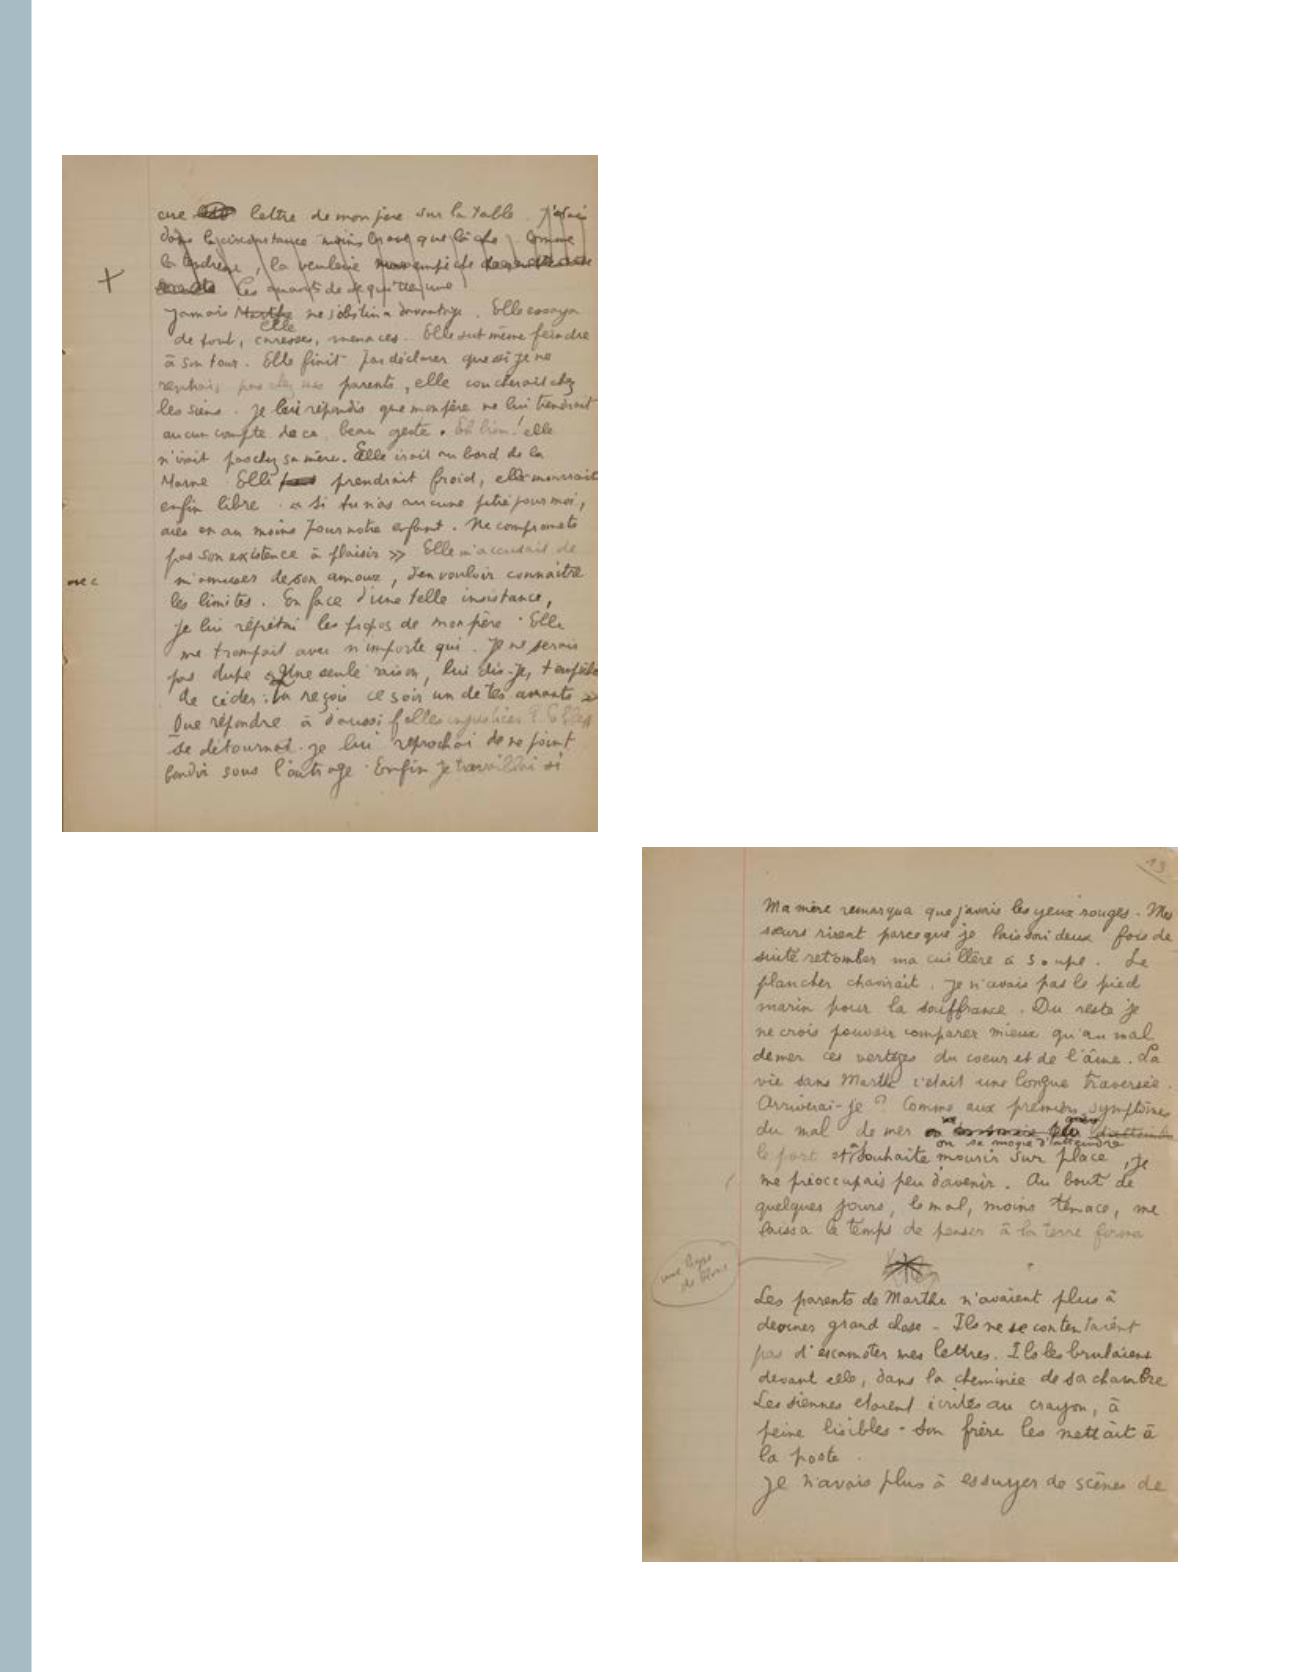 une lettre de mon père sur la table. j'étais
dans la circonstance moins brave que lâche. Comme
la tendresse, la veulerie empêche
les amants de se quitter
+
Jamais Marthe ne s'obstina davantage. Elle essaya
elle
de tout, caresses, menaces. Elle sut même feindre
à son tour. Elle finit par déclarer que si je ne
rentrais pas chez mes parents, elle coucherait chez
les siens. Je lui répondis que mon père ne lui tiendrait
aucun compte de ce beau geste. Eh bien! elle
n'irait pas chez sa mère. Elle irait au bord de la
Marne Elle prendrait froid, elle mourrait
enfin libre. « Si tu n'as aucune pitié pour moi,
aies en au moins pour notre enfant. Ne compromets
pas son existence à plaisir » Elle m'accusait de
avec
m'amuser de son amour, d'en vouloir connaître
les limites. En face d'une telle insistance,
je lui répétai les propos de mon père. Elle
me trompait avec n'importe qui. Je ne serais
pas dupe « Une seule raison, lui dis-je, t'empêche
de céder: tu reçois ce soir un de tes amants »
Que répondre à d'aussi folles injustices? Elle
se détourna. je lui reprochai de ne point
bondir sous l'outrage. Enfin je travaillai si
13
Ma mère remarqua que j'avais les yeux rouges - Mes
sœurs rirent parce que je laissai deux fois de
suite retomber ma cuillère à soupe. Le
plancher chavirait. Je n'avais pas le pied
marin pour la souffrance. Du reste je
ne crois pouvoir comparer mieux qu'au mal
de mer ces vertiges du cœur et de l'âme. La
vie sans Marthe c'était une longue traversée.
Arriverai-je? Comme aux premiers symptômes
du mal de mer
on se moque d'atteindre
le port et souhaite mourir sur place, je
me préoccupais peu d'avenir. Au bout de
quelques jours, le mal, moins tenace, me
laissa le temps de penser à la terre ferme
une ligne
de blanc
Les parents de Marthe n'avaient plus à
deviner grand chose - Ils ne se contentaient
pas d'escamoter mes lettres. Ils les brulaient
devant elle, dans la cheminée de sa chambre
Les siennes étaient écrites au crayon, à
peine lisibles - Son frère les mettait à
la poste.
Je n'avais plus à essuyer de scènes de